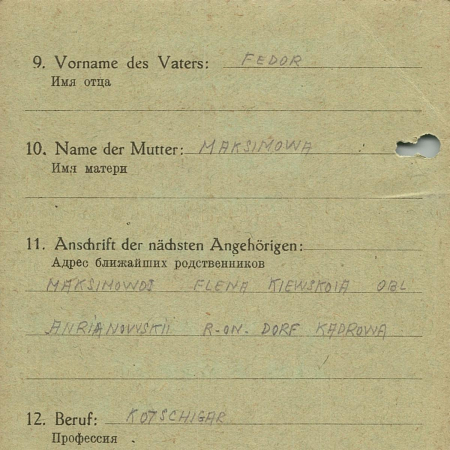 9. Vorname des Vaters: FEDOR
Имя отца
10. Name der Mutter: MAKSIMOWA
Имя матери
11. Anschrift der nächsten Angehörigen:
Адрес ближайших родственников
MAKSIMOWDS ELENA KIEWSKOIA OBL
ANRIANOVVSKII R-ON. DORF KADROWA
12. Beruf: KOTSCHIGAR
Профессия